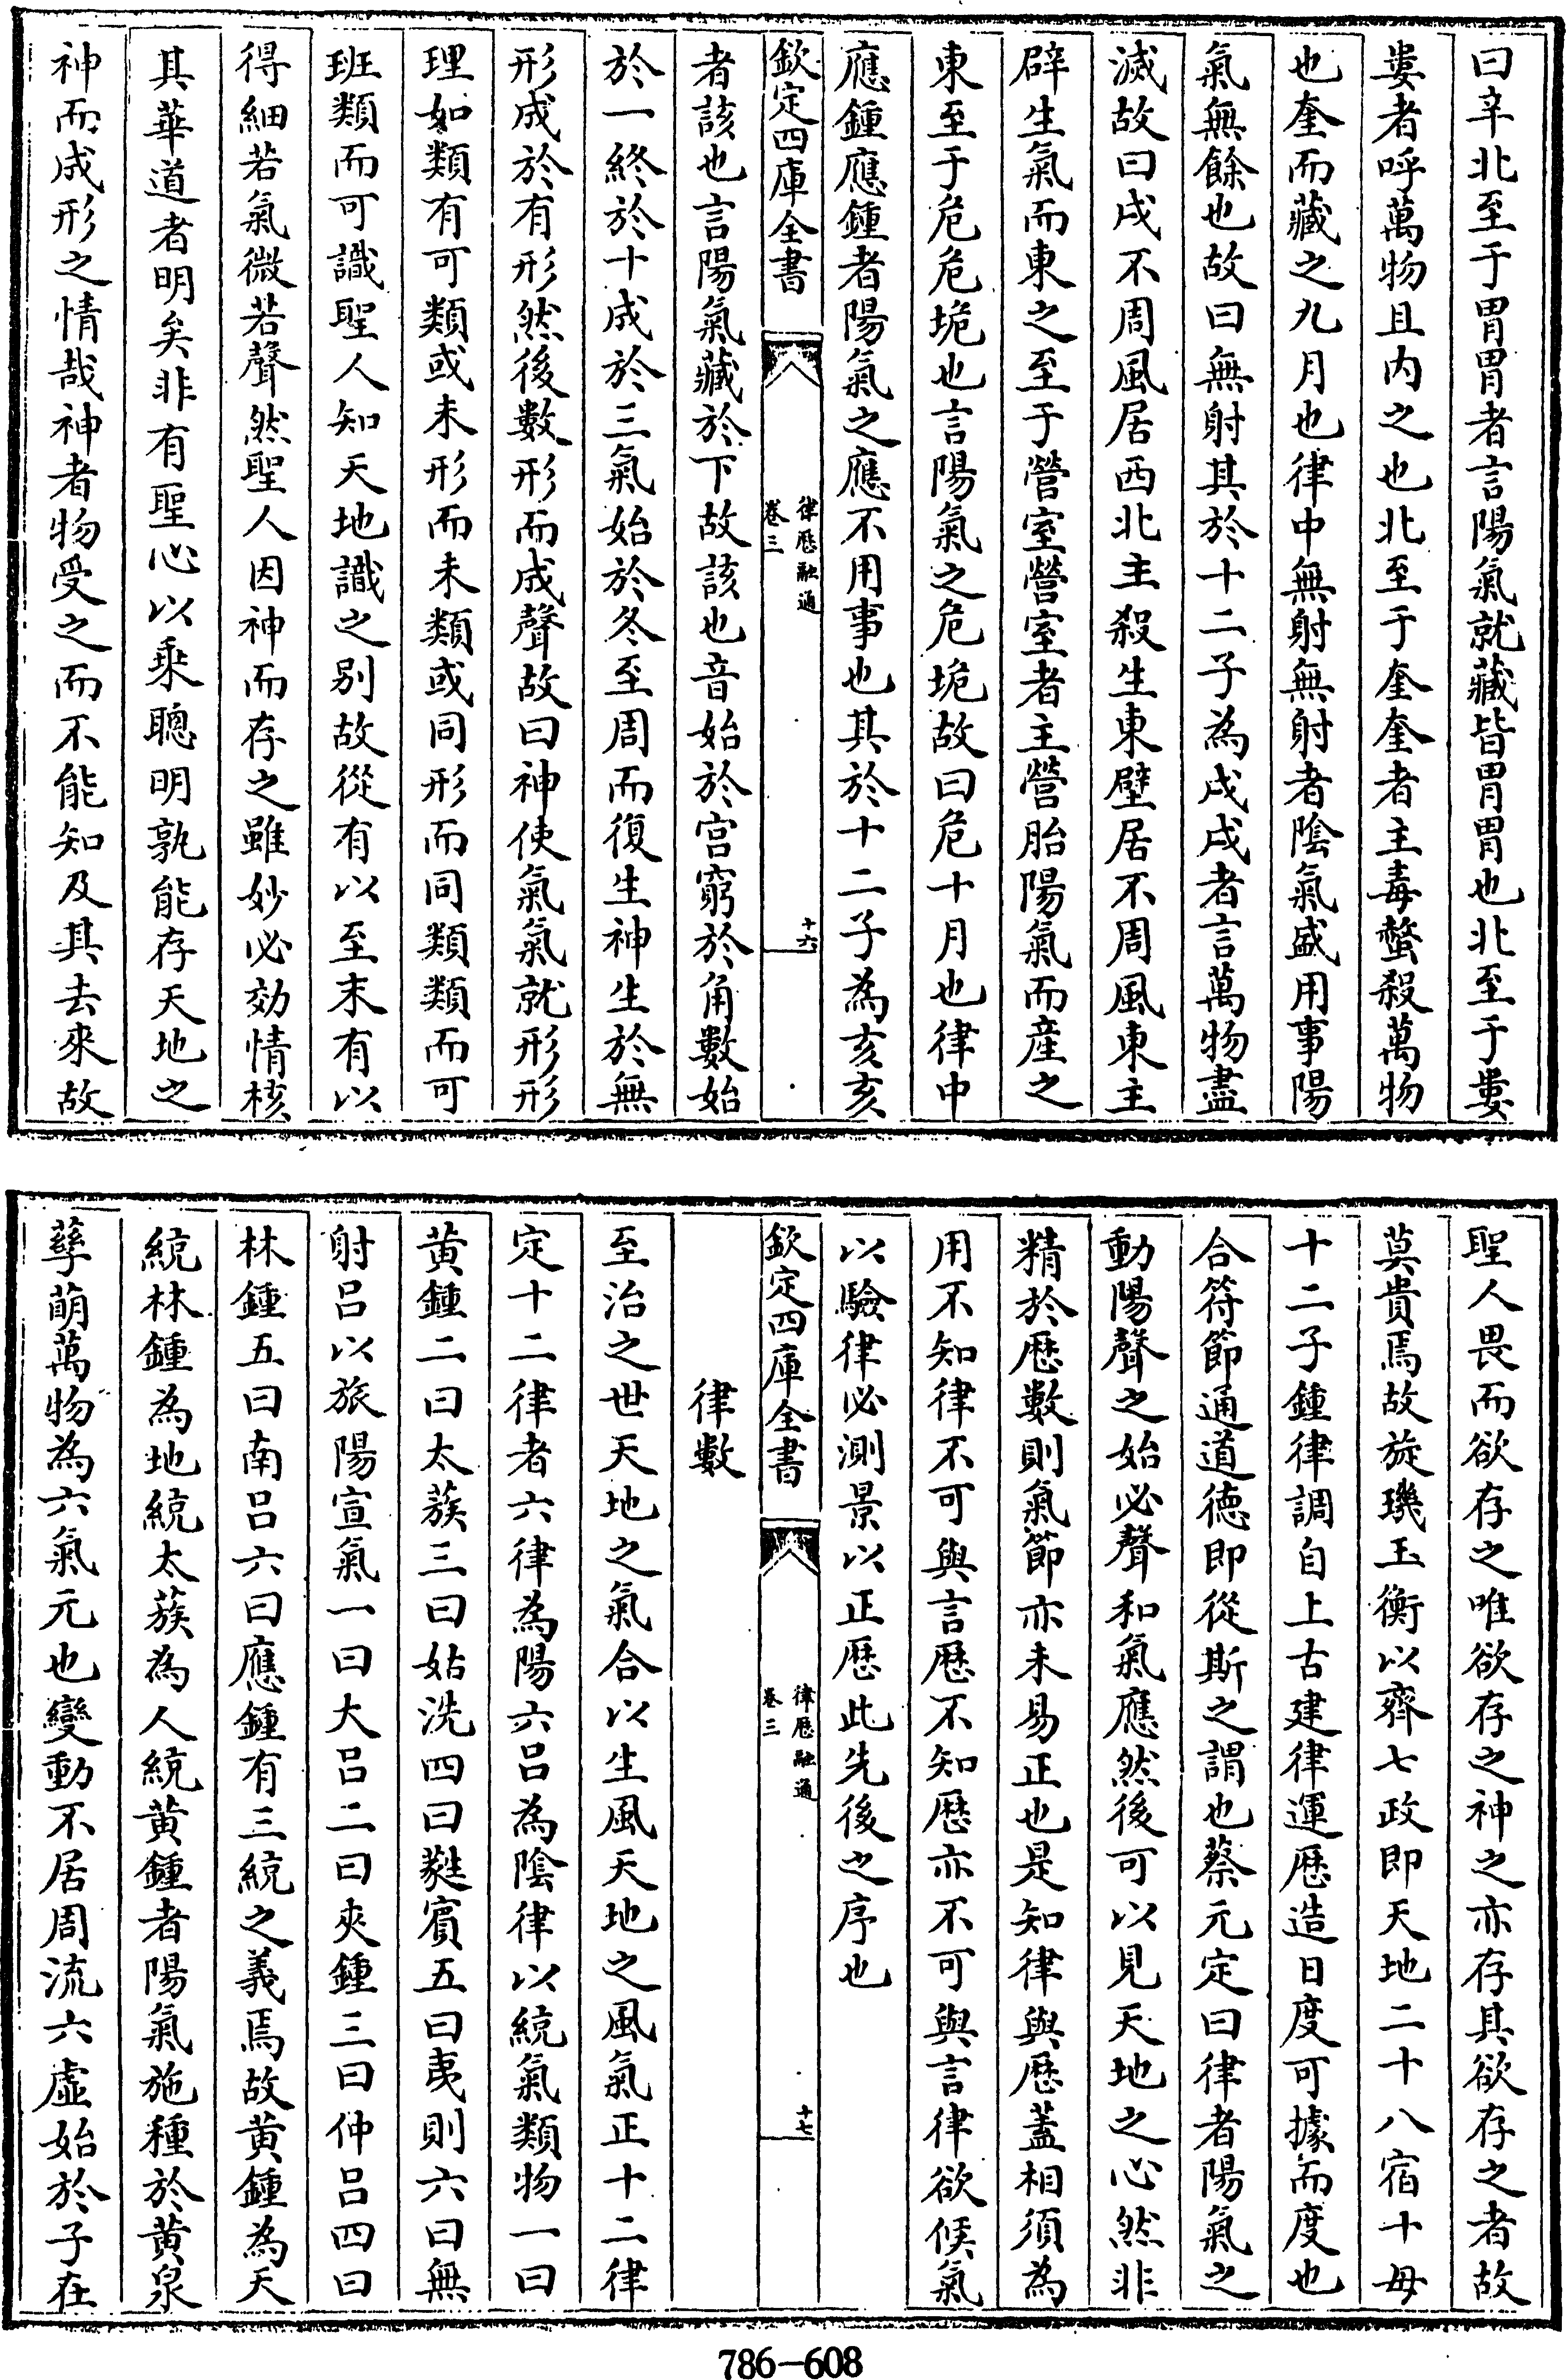 曰辛北至于胃胃者言陽氣就藏皆胃胃也北至于婁
婁者呼萬物且内之也北至于奎奎者主毒螫殺萬物
也奎而藏之九月也律中無射無射者陰氣盛用事陽
氣無餘也故曰無射其於十二子為戌戌者言萬物盡
滅故曰戌不周風居西北主殺生東壁居不周風東主
辟生氣而東之至于營室營室者主營胎陽氣而産之
東至于危危垝也言陽氣之危垝故曰危十月也律中
應鍾應鍾者陽氣之應不用事也其於十二子為亥亥
欽定四庫全書
律厯融通
卷三
十六
者該也言陽氣藏於下故該也音始於宫窮於角數始
於一終於十成於三氣始於冬至周而復生神生於無
形成於有形然後數形而成聲故曰神使氣氣就形形
理如類有可類或未形而未類或同形而同類類而可
班類而可識聖人知天地識之别故從有以至末有以
得細若氣微若聲然聖人因神而存之雖妙必効情核
其華道者明矣非有聖心以乘聰明孰能存天地之
神而成形之情哉神者物受之而不能知及其去來故
聖人畏而欲存之唯欲存之神之亦存其欲存之者故
莫貴焉故旋璣玉衡以齊七政即天地二十八宿十母
十二子鍾律調自上古建律運厯造日度可據而度也
合符節通道徳即從斯之謂也蔡元定曰律者陽氣之
動陽聲之始必聲和氣應然後可以見天地之心然非
精於厯數則氣節亦未易正也是知律與厯蓋相須為
用不知律不可與言厯不知厯亦不可與言律欲候氣
以驗律必測景以正厯此先後之序也
欽定四庫全書
律厯融通
卷三
十七
律數
至治之世天地之氣合以生風天地之風氣正十二律
定十二律者六律為陽六吕為陰律以統氣類物一曰
黄鍾二曰太蔟三曰姑洗四曰蕤賓五曰夷則六曰無
射吕以旅陽宣氣一曰大吕二曰夾鍾三曰仲吕四曰
林鍾五曰南吕六曰應鍾有三統之義焉故黄鍾為天
統林鍾為地統太蔟為人統黄鍾者陽氣施種於黄泉
孳萌萬物為六氣元也變動不居周流六虛始於子在
786-608